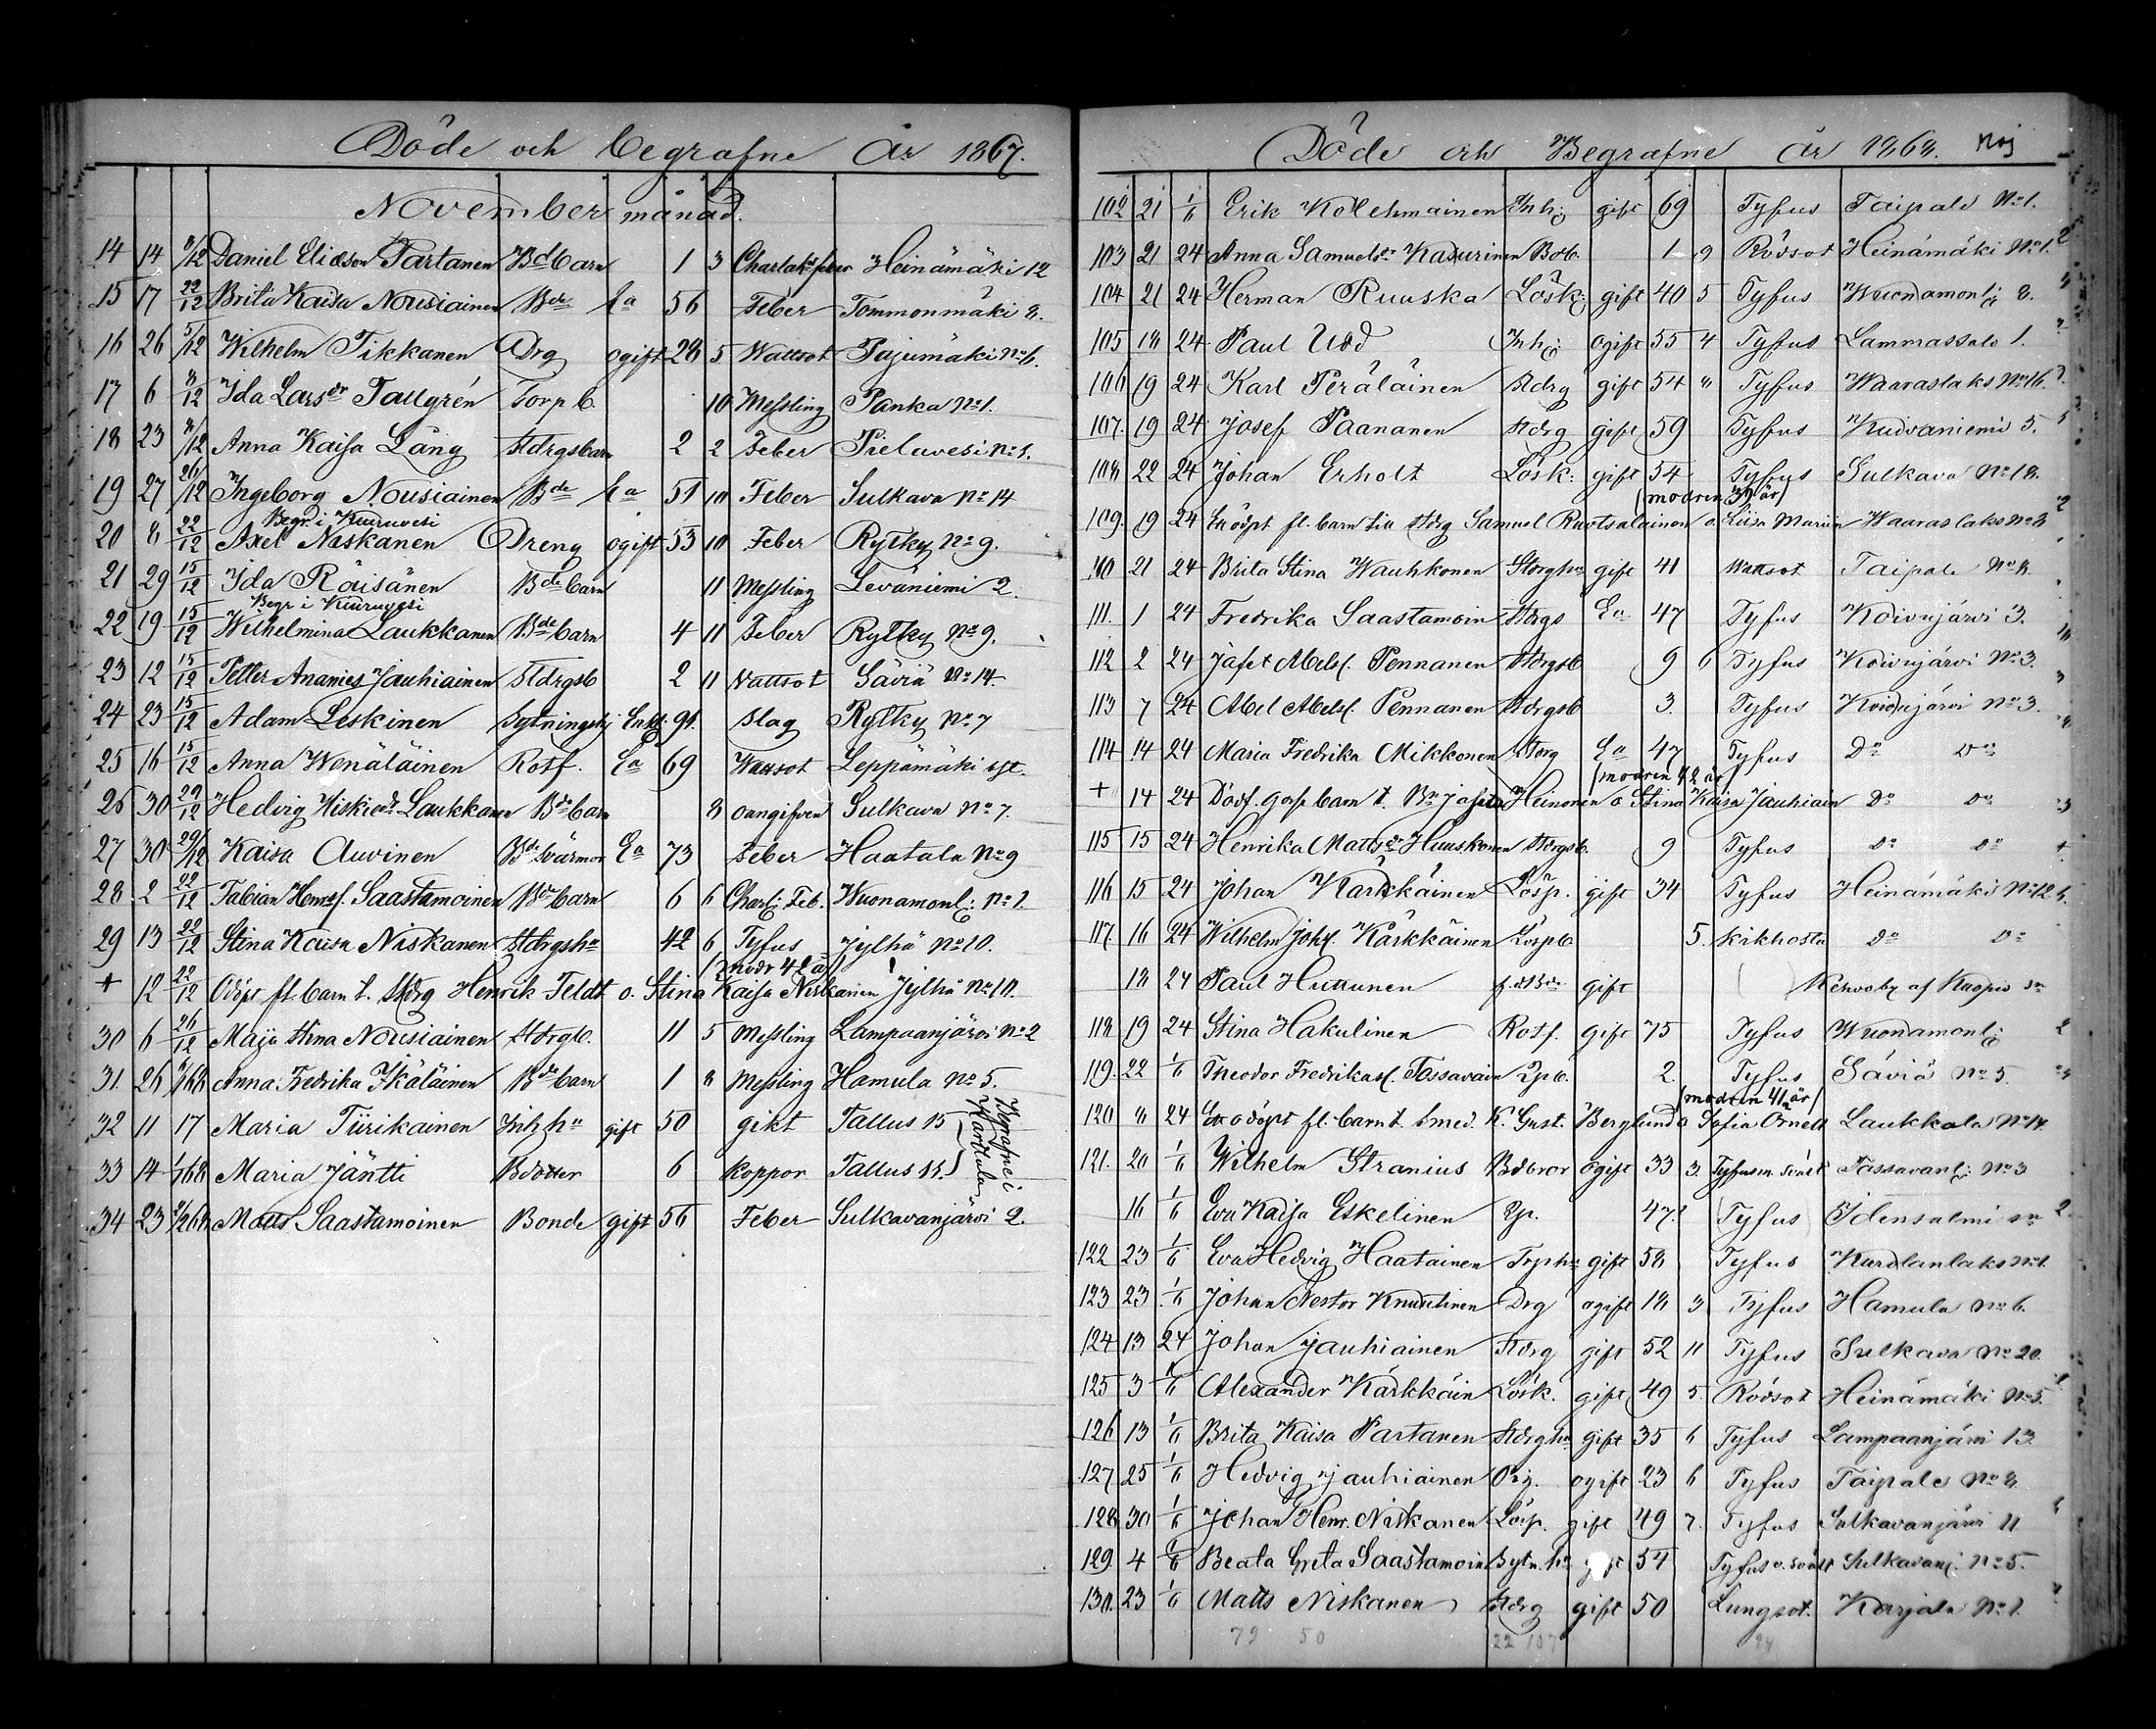 Döde och begrafne år 1867.
November månad.
14 14 8/12 Daniel Eliæson Partanen Bdebarn 1 3 Charlak: feber Heinämäki 12
15 17 22/12 Brita Kaisa Nousiainen Bde Ea 56 Feber Tommonmäki 8.
16 26 5/12 Wilhelm Tikkanen Drg ogift 28 5 Wattsot Pajumäki No 6.
17 6 8/12 Ida Larsdr Tallgrén Torp b. 10 Messling Panka No 1.
18 23 8/12 Anna Kaisa Läng Stdrgsbarn 2 2 Feber Pielavesi No 1.
19 27 26/12 Ingeborg Nousiainen Bde Ea 51 10 Feber Sulkava No 14
Begr. i Kiuruvesi
20 8 22/12 Axel Niskanen Dreng ogift 53 10 Feber Rytky No 9.
21 29 15/12 Ida Räisänen Bdebarn 11 Messling Leväniemi 2.
Begr i Kiuruvesi
22 19 15/12 Wilhelmina Laukkanen Bdebarn 4 11 Feber Rytky No 9.
23 12 15/12 Petter Ananies Jauhiainen Stdrgsb 2 11 Vattsot Säviä No 14.
24 23 15/12 Adam Leskinen Sytningshj Enkl. 91. slag Rytky No 7
25 16 15/12 Anna Wenäläinen Rotf. Ea 69 Wattsot Leppämäki
26 30 29/12 Hedvig Hiskiedr Laukkanen Bdebarn 8 oangifven Sulkava No 7.
27 30 29/12 Kaisa Auvinen Bdesvärmor Ea 73 Feber Haatala No 9
28. 2 22/12 Fabian Henrsf. Saastamoinen Bdebarn 6 6 Charl: Feb. Wuonamonl: No 1.
29 13 22/12 Stina Kaisa Niskanen Stdrgshu 42 6 Tyfus Jylhä No 10.
(modr 42 år)
+ 12 22/12 Odöpt fl. barn t. Stdrg Henrik Feldt o. Stina Kaisa Niskanen Jylhä No 10.
30 6 26/12 Maja Stina Nousiainen Stdrgb. 11 5 Messling Lampaanjärvi No 2
31. 26 6/1 68 Anna Fredrika Ikäläinen Bdebarn 1 8 Messling Hamula No 5.
32 11 17 Maria Tiirikainen Inhhu gift 50 gikt Tallus 15
33 14 1/1 68 Maria Jäntti Bdotter 6 Koppor Tallus 11. Begrafne i Karttula
34 23 2/2 68 Matts Saastamoinen Bonde gift 56 Feber Sulkavanjärvi 2.
Döde och Begrafne år 1868. Maj
102 21 1/6 Erik Kolehmainen Inh: gift 69 Tyfus Taipale No 1.
103 21 24 Anna Samuelsdr Kadurinen Bdb. 1 9 Rödsot Heinämäki No 1.
104 21 24 Herman Ruuska Lösk: gift 40 5 Tyfus Wuonamonl: 8.
105 18 24 Paul Udd Inh: ogift 55 4 Tyfus Lammassalo 1.
106 19 24 Karl Peräläinen Stdrg gift 54 " Tyfus Waaraslaks No 16.
107. 19 24 Josef Paananen Stdrg gift 59 Tyfus Kudvaniemi 5.
108 22 24 Johan Erholt Lösk: gift 54 Tyfus Sulkava No 18.
(modren 39 år)
109. 19 24 En odöpt fl. barn till stdrg Samuel Ruotsalainen o. Liisa Marian Waaraslaks No 8
110 21 24 Brita Stina Wauhkonen Stdrghu gift 41 Wattsot Taipale No 8.
111. 1 24 Fredrika Saastamoin Stdrgs Ea 47 Tyfus Koivujärvi 3.
112 2 24 Jafet Abelsf. Pennanen Stdrgsb 9 6 Tyfus Koivujärvi No 3.
113 7 24 Abel Abelsf. Pennanen Stdrgsb 3. Tyfus Koivujärvi No 3.
114 14 24 Maria Fredrika Mikkonen Stdrg Ea 47 Tyfus Do Do
(modren 42 år)
+ 14 24 Dödf. goss barn t. Bn Jafet Heinonen o Stina Kaisa Jauhiain Do Do
115 15 24 Henrika Mattsdr Huuskonen Stdrgsb. 9 Tyfus Do Do
116 15 24 Johan Karkkäinen Lösp. gift 34 Tyfus Heinämäki No 12
117. 16 24 Wilhelm Johsf. Kärkkäinen Löspb 5. Kikhosta Do Do
18 24 Paul Huttunen f. d Bde gift Kehvoby af Kuopio sn
118 19 24 Stina Hakulinen Rotf. gift 75 Tyfus Wuonamonl:
119. 22 1/6 Theodor Fredrikasf. Tossavain Ppb. 2. Tyfus Säviä No 5.
(modren 41 år)
120 8 24 En odöpt fl. barn t. smed. K. Gust. Berglund o Sofia Ornell Laukkala No 14.
121. 20 1/6 Wilhelm Stranius Bdbror ogift 33 3. Tyfus m. svulst Tossavanl: No 3
16 1/6 Eva Kaisa Eskelinen Pp. 47. Tyfus Idensalmi sn
122 23 1/6 Eva Hedvig Haatainen Trphu gift 58 Tyfus Kurolanlaks No 1.
123 23 1/6 Johan Nestor Knuutinen Drg ogift 18 3 Tyfus Hamula No 6.
124 13 24 Johan Jauhiainen Stdrg gift 52 11 Tyfus Sulkava No 20.
125 3 1/6 Alexander Kärkkäin Lösk. gift 49 5. Rödsot Heinämäki No 5.
126 13 1/6 Brita Kaisa Partanen Stdrghu gift 35 6 Tyfus Lampaanjärvi 13.
127. 25 1/6 Hedvig Jauhiainen Pig. ogift 23 6 Tyfus Taipale No 8.
128 30 1/6 Johan Henr. Niskanen Lösp. gift 49 7. Tyfus Sulkavanjärvi 11
129. 4 1/6 Beata Greta Saastamoin Sytn. hu gift 54 Tyfus o. svulst Sulkavanj: No 5.
130. 23 1/6 Matts Niskanen Stdrg gift 50 Lungsot. Karjala No 1.
79 50 22 107 24